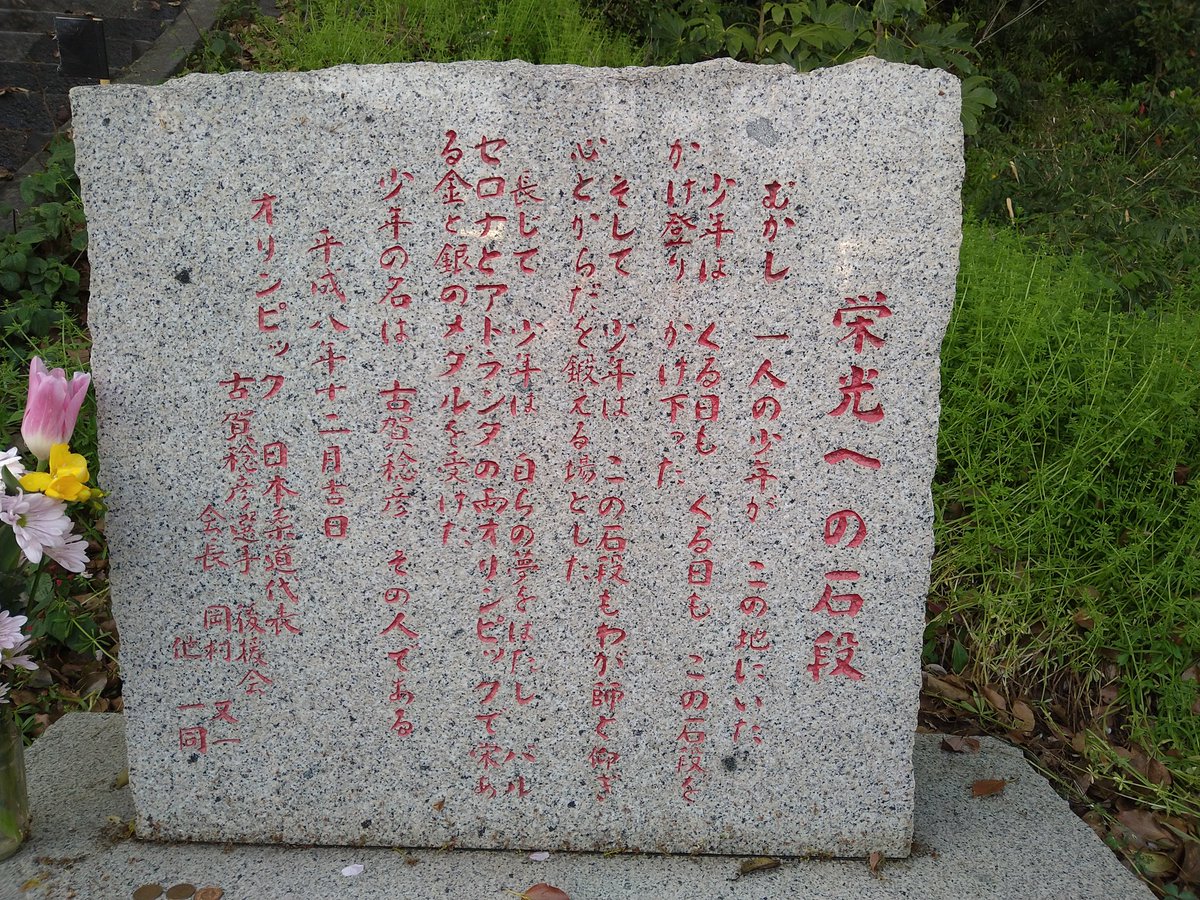 栄光への石段
むかし 一人の少年が この地にいた
少年は くる日も くる日も この石段を
かけ登り かけ下った
そして 少年は この石段もわが師と仰ぎ
心とからだを鍛える場とした
長じて 少年は 自らの夢をはたし バル
セロナとアトランタの両オリンピックで栄あ
る金と銀のメダルを受けた
少年の名は 古賀稔彦 その人である
平成八年十二月吉日
オリンピック 日本柔道代表
古賀稔彦選手 後援会
会長 岡村 又一
他 一同